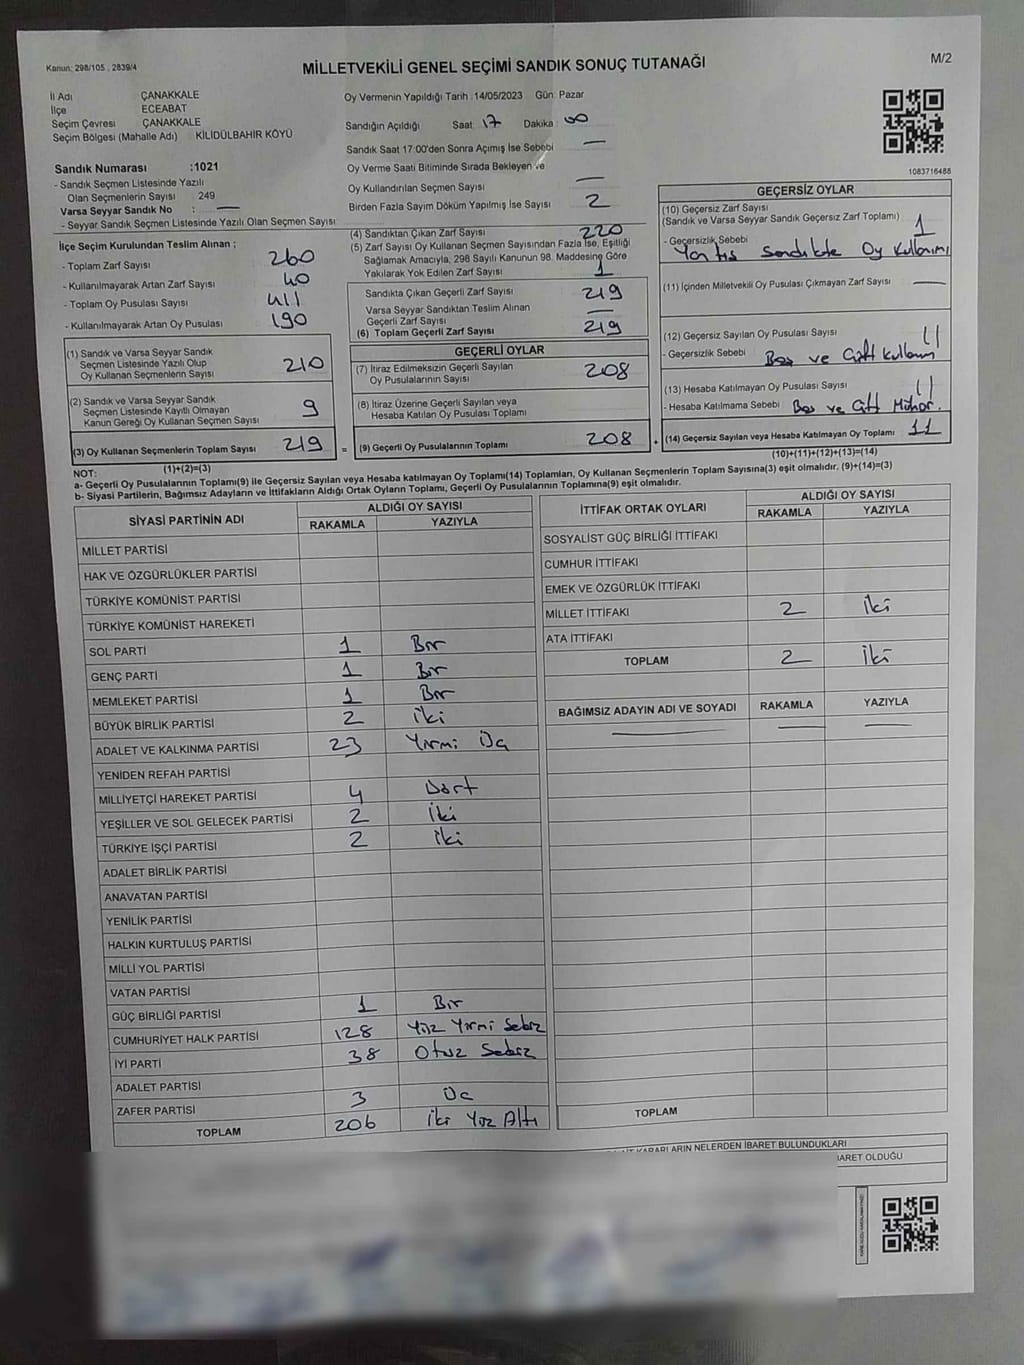 Kanun: 298/105 , 2839/4
MİLLETVEKİLİ GENEL SEÇİMİ SANDIK SONUÇ TUTANAĞI
M/2
İl Adı ÇANAKKALE
İlçe ECEABAT
Seçim Çevresi ÇANAKKALE
Seçim Bölgesi (Mahalle Adı) KİLİDÜLBAHİR KÖYÜ
Sandık Numarası :1021
- Sandık Seçmen Listesinde Yazılı
Olan Seçmenlerin Sayısı : 249
Varsa Seyyar Sandık No : —
- Seyyar Sandık Seçmen Listesinde Yazılı Olan Seçmen Sayısı
Oy Vermenin Yapıldığı Tarih :14/05/2023 Gün: Pazar
Sandığın Açıldığı Saat 17 Dakika 00
Sandık Saat 17:00'den Sonra Açımış İse Sebebi —
Oy Verme Saati Bitiminde Sırada Bekleyen ve
Oy Kullandırılan Seçmen Sayısı —
Birden Fazla Sayım Döküm Yapılmış İse Sayısı 2
1083716488
İlçe Seçim Kurulundan Teslim Alınan ;
- Toplam Zarf Sayısı 260
- Kullanılmayarak Artan Zarf Sayısı 40
- Toplam Oy Pusulası Sayısı 411
- Kullanılmayarak Artan Oy Pusulası 190
(1) Sandık ve Varsa Seyyar Sandık
Seçmen Listesinde Yazılı Olup
Oy Kullanan Seçmenlerin Sayısı 210
(2) Sandık ve Varsa Seyyar Sandık
Seçmen Listesinde Kayıtlı Olmayan
Kanun Gereği Oy Kullanan Seçmen Sayısı 9
(3) Oy Kullanan Seçmenlerin Toplam Sayısı 219 =
(1)+(2)=(3)
(4) Sandıktan Çıkan Zarf Sayısı 220
(5) Zarf Sayısı Oy Kullanan Seçmen Sayısından Fazla İse, Eşitliği
Sağlamak Amacıyla, 298 Sayılı Kanunun 98. Maddesine Göre
Yakılarak Yok Edilen Zarf Sayısı 1
Sandıkta Çıkan Geçerli Zarf Sayısı 219
Varsa Seyyar Sandıktan Teslim Alınan
Geçerli Zarf Sayısı —
(6) Toplam Geçerli Zarf Sayısı 219
GEÇERLİ OYLAR
(7) İtiraz Edilmeksizin Geçerli Sayılan
Oy Pusulalarının Sayısı 208
(8) İtiraz Üzerine Geçerli Sayılan veya
Hesaba Katılan Oy Pusulası Toplamı
(9) Geçerli Oy Pusulalarının Toplamı 208
GEÇERSİZ OYLAR
(10) Geçersiz Zarf Sayısı
(Sandık ve Varsa Seyyar Sandık Geçersiz Zarf Toplamı) 1
- Geçersizlik Sebebi
Yanlış Sandıkta Oy Kullanımı
(11) İçinden Milletvekili Oy Pusulası Çıkmayan Zarf Sayısı —
(12) Geçersiz Sayılan Oy Pusulası Sayısı 11
- Geçersizlik Sebebi Boş ve Çift Kullanım
(13) Hesaba Katılmayan Oy Pusulası Sayısı 11
- Hesaba Katılmama Sebebi Boş ve Çift Mühür.
(14) Geçersiz Sayılan veya Hesaba Katılmayan Oy Toplamı 11
(10)+(11)+(12)+(13)=(14)
NOT:
a- Geçerli Oy Pusulalarının Toplamı(9) ile Geçersiz Sayılan veya Hesaba katılmayan Oy Toplamı(14) Toplamları, Oy Kullanan Seçmenlerin Toplam Sayısına(3) eşit olmalıdır. (9)+(14)=(3)
b- Siyasi Partilerin, Bağımsız Adayların ve İttifakların Aldığı Ortak Oyların Toplamı, Geçerli Oy Pusulalarının Toplamına(9) eşit olmalıdır.
SİYASİ PARTİNİN ADI ALDIĞI OY SAYISI
RAKAMLA YAZIYLA
MİLLET PARTİSİ
HAK VE ÖZGÜRLÜKLER PARTİSİ
TÜRKİYE KOMÜNİST PARTİSİ
TÜRKİYE KOMÜNİST HAREKETİ
SOL PARTİ 1 Bir
GENÇ PARTİ 1 Bir
MEMLEKET PARTİSİ 1 Bir
BÜYÜK BİRLİK PARTİSİ 2 iki
ADALET VE KALKINMA PARTİSİ 23 Yirmi Üç
YENİDEN REFAH PARTİSİ
MİLLİYETÇİ HAREKET PARTİSİ 4 Dört
YEŞİLLER VE SOL GELECEK PARTİSİ 2 İki
TÜRKİYE İŞÇİ PARTİSİ 2 İki
ADALET BİRLİK PARTİSİ
ANAVATAN PARTİSİ
YENİLİK PARTİSİ
HALKIN KURTULUŞ PARTİSİ
MİLLİ YOL PARTİSİ
VATAN PARTİSİ
GÜÇ BİRLİĞİ PARTİSİ 1 Bir
CUMHURİYET HALK PARTİSİ 128 Yüz Yirmi Sekiz
İYİ PARTİ 38 Otuz Sekiz
ADALET PARTİSİ
ZAFER PARTİSİ 3 Üç
TOPLAM 206 İki Yüz Altı
İTTİFAK ORTAK OYLARI ALDIĞI OY SAYISI
RAKAMLA YAZIYLA
SOSYALİST GÜÇ BİRLİĞİ İTTİFAKI
CUMHUR İTTİFAKI
EMEK VE ÖZGÜRLÜK İTTİFAKI
MİLLET İTTİFAKI 2 İki
ATA İTTİFAKI
TOPLAM 2 İki
BAĞIMSIZ ADAYIN ADI VE SOYADI RAKAMLA YAZIYLA
— — —
TOPLAM
KARARLARIN NELERDEN İBARET BULUNDUKLARI
BARET OLDUĞU